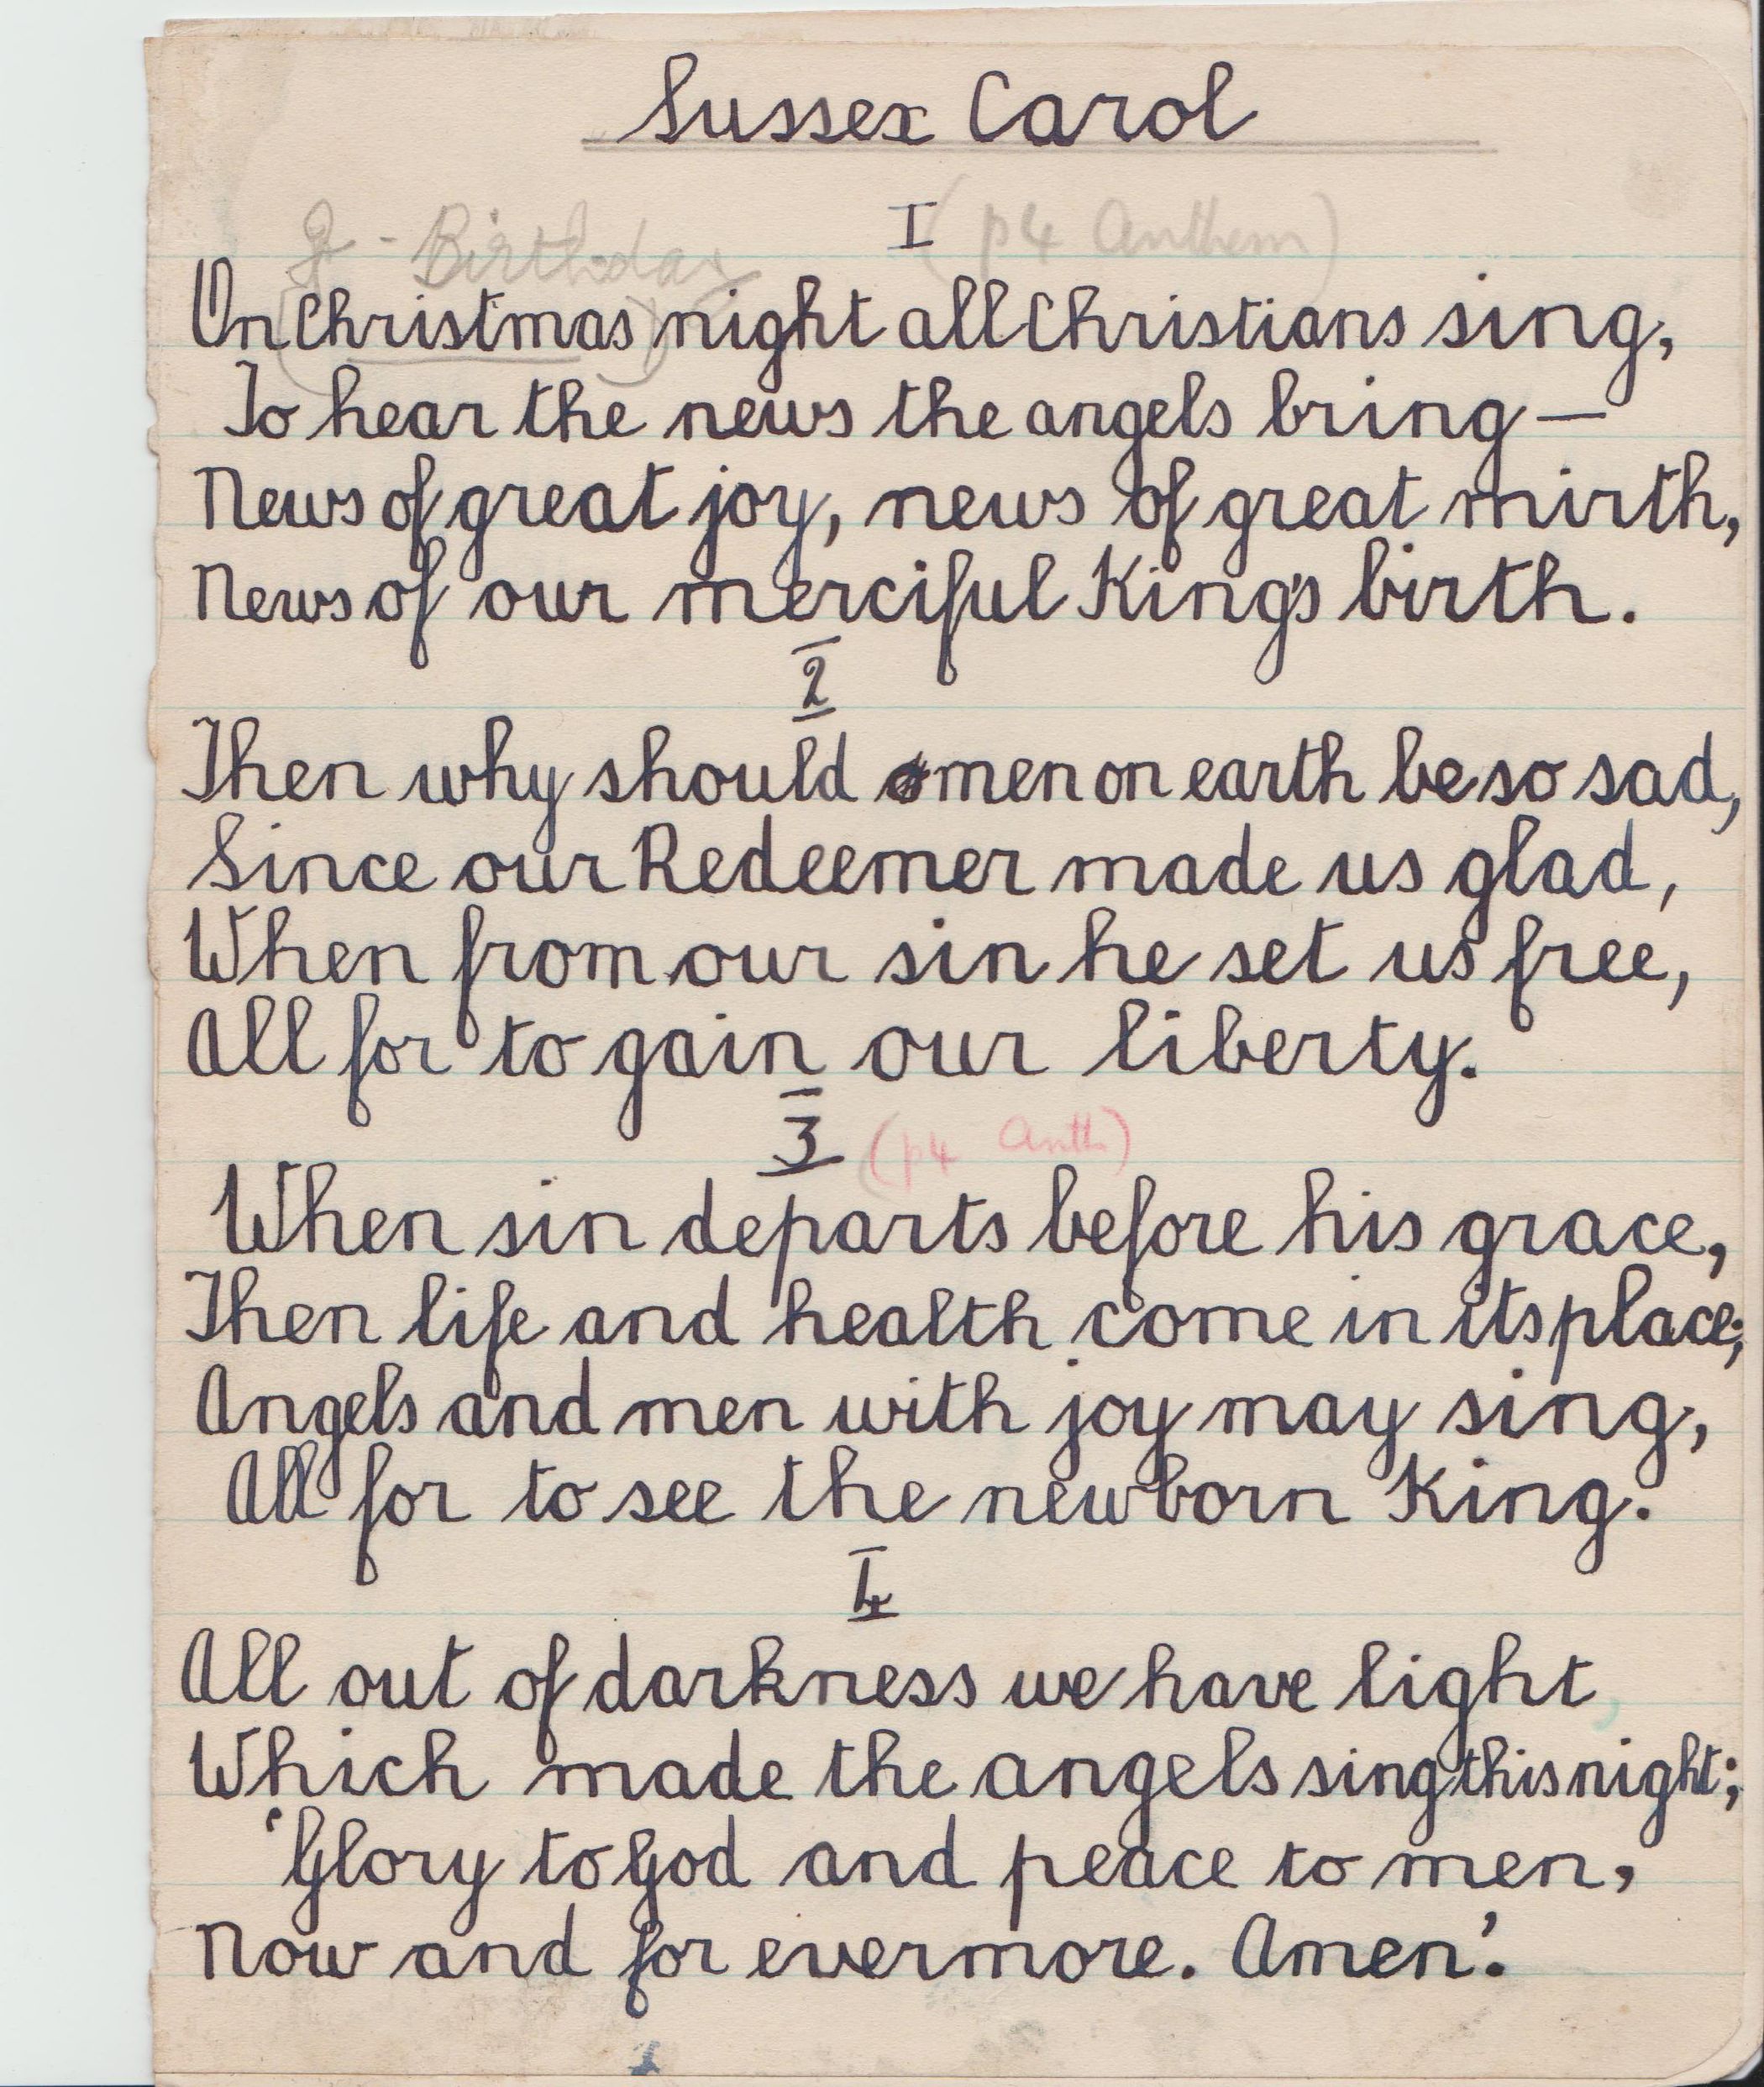 Sussex Carol
I (p4 Anthem)
- Birthday
On Christmas night all Christians sing,
To hear the news the angels bring —
News of great joy, news of great mirth,
News of our merciful King's birth.
2
Then why should men on earth be so sad,
Since our Redeemer made us glad,
When from our sin he set us free,
All for to gain our liberty.
3 (p4 Anth)
When sin departs before his grace,
Then life and health come in its place;
Angels and men with joy may sing,
All for to see the newborn King.
4
All out of darkness we have light,
Which made the angels sing this night;
'Glory to God and peace to men,
Now and for evermore. Amen'.